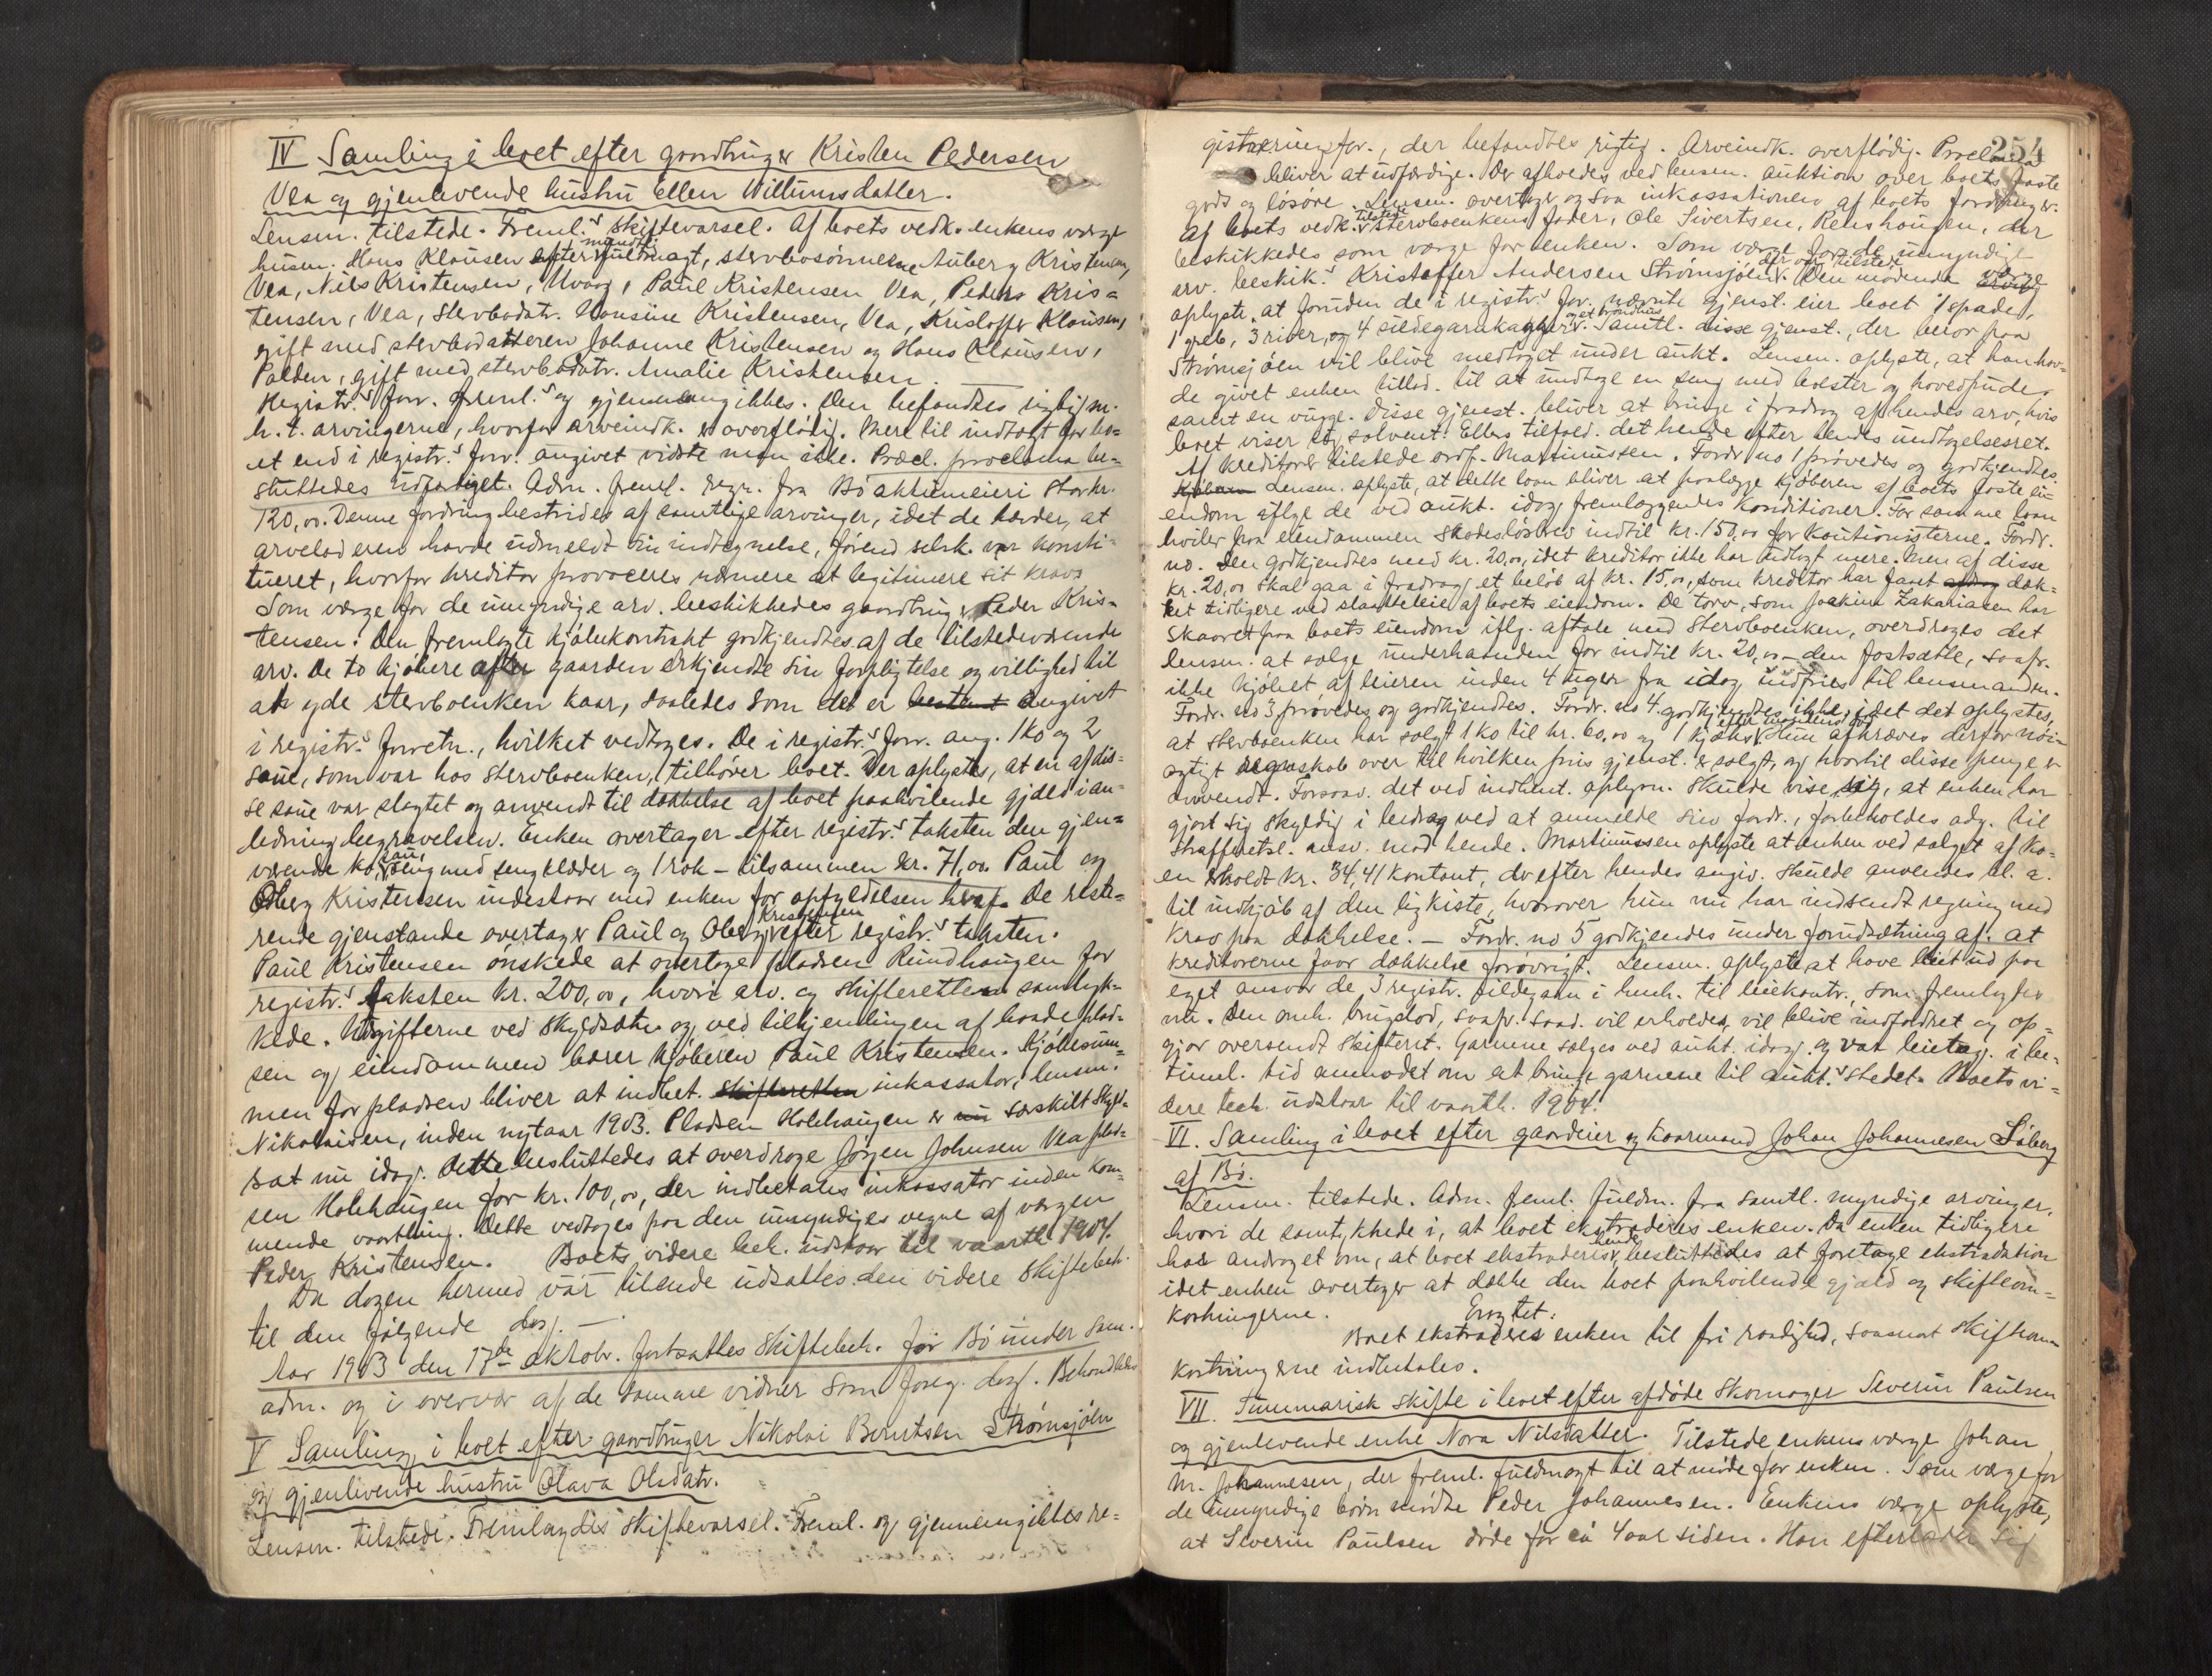 IV Samling i boet efter gaardbruger Kristen Pedersen
Vea og gjenlevende hustru Ellen Willumsdatter.
Lensm. tilstede. Freml.s skiftevarsel. Af boets vedk. enkens værge
husm. Hans Klausen efter mundtl. fuldmagt, stervbosønnerne Auberg Kristensen,
Vea, Nils Kristensen, Uvaag, Paul Kristensen Vea, Peder Kris=
tensen, Vea, stervbodatr. Hansine Kristensen, Vea, Kristoffer Klausen,
gift med stervbodatteren Johanne Kristensen og Hans Klausen,
Palden, gift med stervbodatr. Amalie Kristensen.
Registr.s forr. freml.s og gjennemgikkes. Den befandtes rigtig m.
h. t. arvingerne, hvorfor arveindk. er overflødig. Mere til indtægt for bo=
et end i registr.s forr. angivet vidste man ikke. Præcl. proclama be=
sluttedes udfærdiget. Adm. freml. regn. fra Bø aktiemeieri stor kr.
120,00. Denne fordring bestrides af samtlige arvinger, idet de hævder, at
arveladeren havde udmeldt sin indtegnelse, førend selsk. var konsti=
tueret, hvorfor kreditor provoceres nærmere at legitimere sit krav.
Som værge for de umyndige arv. beskikkedes gaardbruger Peder Kris=
tensen. Den fremlagte kjøbekontrakt godkjendtes af de tilstedeværende
arv. De to kjøbere efter gaarden erkjendte sin forpligtelse og villighed til
at yde stervboenken kaar, saaledes som det er bestemt angivet
i registr.s forretn., hvilket vedtoges. De i registr.s forr. ang. 1 ko og 2
saue, som var hos stervboenken, tilhører boet. Der oplystes, at en af dis=
se saue var slagtet og anvendt til dækkelse af boet paahvilende gjæld i an=
ledning begravelsen. Enken overtager efter registr.s taksten den gjen=
værende ko, sau, seng med sengklæder og 1 rok – tilsammen kr. 71,00. Paul og
Oberg Kristensen indestaar med enken for opfyldelsen heraf. De reste=
rende gjenstande overtager Paul og Oberg Kristensen efter registr.s taksten.
Paul Kristensen ønskede at overtage pladsen Rundhaugen for
registr.s taksten kr. 200,00, hvori arv. og skifteretten samtyk=
kede. Utgifterne ved skyldsætn. og ved tilkjendingen af baade plad=
sen og eiendommen bærer kjøberen Paul Kristensen. Kjøbesum=
men for pladsen bliver at indbet. skifteretten inkassator, lensm.
Nikolaisen, inden nytaar 1903. Pladsen Holehaugen er nu særskilt skyld=
sat nu idag. Dette besluttedes at overdrage Jørgen Johnsen Vea plad=
sen Holehaugen for kr. 100,00, der indbetales inkassator inden kom=
mende vaarthing. Dette vedtoges paa den umyndiges vegne af værgen
Peder Kristensen. Boets videre beh. udstaar til vaarth. 1904.
Da dagen hermed var tilende udsattes den videre skiftebeh.
til den følgende dag. –
Aar 1903 den 17de oktobr. fortsattes skiftebeh. for Bø under sam.
adm. og i overvær af de samme vidner som foreg. dag. Behandledes
V Samling i boet efter gaardbruger Nikolai Berntsen Strømsjøen
og gjenlevende hustru Olava Olsdatr.
Lensm. tilstede. Fremlagdes skiftevarsel. Freml. og gjennemgikkes re=
254
gistreringsfor., der befandtes rigtig. Arveindk. overflødig. Proclama
bliver at udfærdige. Der afholdes ved lensm. auktion over boets faste
gods og løsøre. Lensm. overtager ogsaa inkassationen af boets fordringer.
Af boets vedk. tilstede stervboenkens fader, Ole Sivertsen, Renshaugen, der
beskikkedes som værge for enken. Som værge for de umyndige
arv. beskik.s Kristoffer Andersen Strømsjøen, der var tilstede. Den mødende værge
oplyste, at foruden de i registr.s for. nævnte gjenst. eier boet 1 spade,
1 greb, 3 river, og 4 sildegarnkagger og et brøndhus. Samtl. disse gjenst., der beror paa
Strømsjøen vil blive medtaget under aukt. Lensm. oplyste, at han hav=
de givet enken tillad. til at undtage en seng med bolster og hovedpude,
samt en vugge. Disse gjenst. bliver at bringe i fradrag af hendes arv, hvis
boet viser sig solvent. Ellers tilfald. det hende efter hendes undtagelsesret.
Af kreditorer tilstede ordf. Martinussen. Fordr. no 1 prøvedes og godkjendtes.
Lensm. oplyste, at dette laan bliver at paalægge kjøberen af boets faste ei=
endom ifølge de ved aukt. idag fremlæggendes konditioner. For samme laan
hviler paa eiendommen skadesløsbrev indtil kr. 150,00 for kautionisterne. Fordr.
no. Den godkjendtes med kr. 20,00, idet kreditor ikke har udlagt mere. Men af disse
kr. 20,00 skal gaa i fradrag et beløb af kr. 15,00, som kreditor har faaet dæk=
ket tidligere ved slaatteleie af boets eiendom. De torv, som Joakim Zakariasen har
skaaret paa boets eiendom iflg. aftale med stervboenken, overdrages det
lensm. at sælge underhaanden for indtil kr. 20,00 – den fastsætte, saafr.
ikke kjøbet af leieren inden 4 uger fra idag indfries til lensmanden.
Fordr. no 3 prøvedes og godkjendtes. Fordr. no 4 godkjendtes ikke, idet det oplystes,
at stervboenken har solgt 1 ko til kr. 60,00 og 1 kjøks efter mandens død. Hun afkræves derfor nøi=
agtigt regnskab over til hvilken pris gjenst. er solgt, og hvortil disse penge er
anvendt. Forsaav. det ved indhent. oplysn. skulde vise sig, at enken har
gjort sig skyldig i bedrag ved at anmelde sin fordr., forbeholdes adg. til
strafferetsl. ansv. mod hende. Martinussen oplyste at enken ved salget af ko=
en erholdt kr. 34,41 kontant, der efter hendes angiv. skulde anvendes bl. a.
til indkjøb af den ligkiste, hvorover hun nu har indsendt regning med
krav paa dækkelse. – Fordr. no 5 godkjendes under forudsætning af at
kreditorerne faar dækkelse forøvrigt. Lensm. oplyste at have leiet ud paa
eget ansvar de 3 registr. sildegarn i henh. til leiekontr., som fremlagdes
nu. Den omh. brugslod, saafr. saad. vil erholdes, vil blive indfordret og op=
gjør oversendt skifteret. Garnene sælges ved aukt. idag og var leietag. i be=
timel. tid anmodet om at bringe garnene til aukt.s stedet. Boets vi=
dere beh. udstaar til vaarth. 1904.
VI. Samling i boet efter gaardeier og kaarmand Johan Johannesen Søberg
af Bø.
Lensm. tilstede. Adm. freml. fuldm. fra samtl. myndige arvinger,
hvori de samtykkede i, at boet ekstraderes enken. Da enken tidligere
har andraget om, at boet ekstraderes hende, besluttedes at foretage ekstradation
idet enken overtager at dække den boet paahvilende gjæld og skifteom=
kostningerne. Eragtet:
Boet ekstraderes enken til fri raadighed, saasnart skifteom=
kostningerne indbetales.
VII. Summarisk skifte i boet efter afdøde skomager Severin Paulsen
og gjenlevende enke Nora Nilsdatter. Tilstede enkens værge Johan
M. Johannesen, der freml. fuldmagt til at møde for enken. Som værge for
de umyndige børn mødte Peder Johannesen. Enkens værge oplyste,
at Severin Paulsen døde for ca 4 aar siden. Han efterlader sig